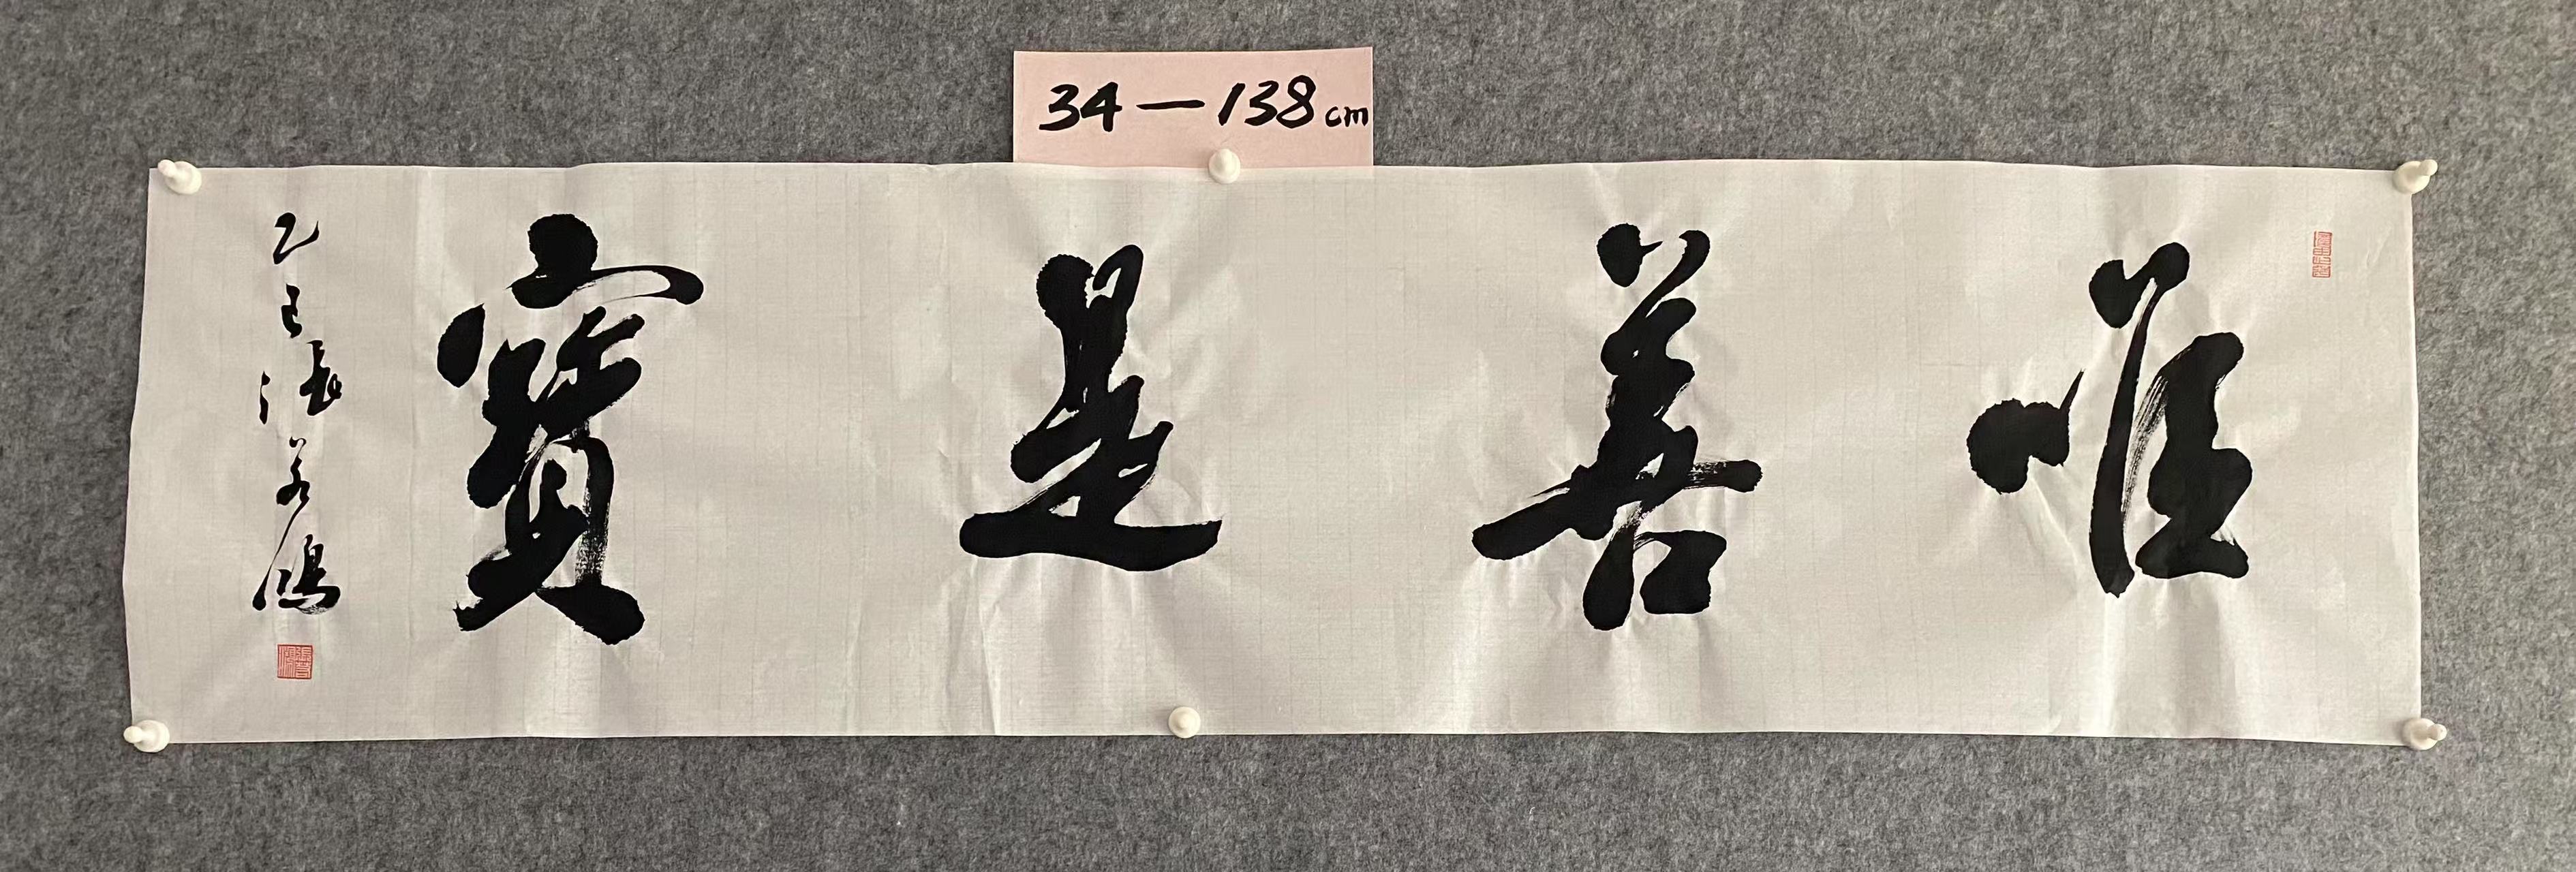 34—138cm
唯善是寶
乙巳張若鴻